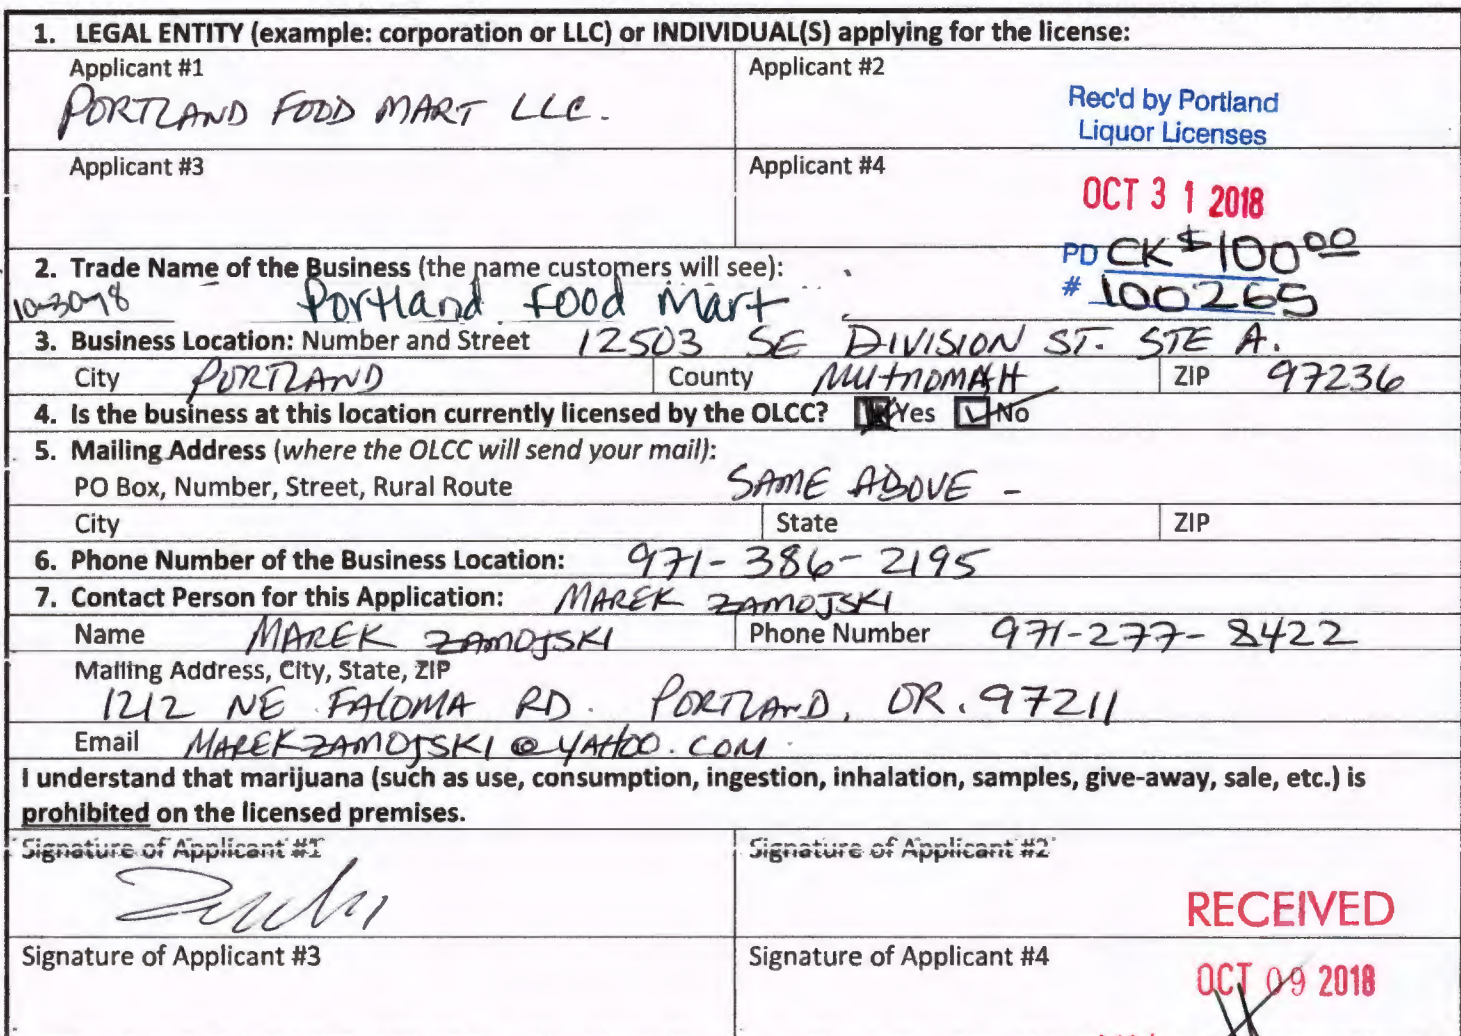 1. LEGAL ENTITY (example: corporation or LLC) or INDIVIDUAL(S) applying for the license:
Applicant #1
PORTLAND FOOD MART LLC.
Applicant #2
Rec'd by Portland
Liquor Licenses
Applicant #3
Applicant #4
OCT 3 1 2018
PD CK $100 00
# 100265
2. Trade Name of the Business (the name customers will see):
10-30-18 Portland Food Mart
3. Business Location: Number and Street 12503 SE DIVISION ST. STE A.
City PORTLAND County MUTNOMAH ZIP 97236
4. Is the business at this location currently licensed by the OLCC? Yes No
5. Mailing Address (where the OLCC will send your mail):
PO Box, Number, Street, Rural Route SAME ABOVE -
City State ZIP
6. Phone Number of the Business Location: 971-386-2195
7. Contact Person for this Application: MAREK ZAMOJSKI
Name MAREK ZAMOJSKI Phone Number 971-277-8422
Mailing Address, City, State, ZIP
1212 NE FALOMA RD. PORTLAND, OR. 97211
Email MAREKZAMOJSKI@YAHOO.COM
I understand that marijuana (such as use, consumption, ingestion, inhalation, samples, give-away, sale, etc.) is
prohibited on the licensed premises.
Signature of Applicant #1
Signature of Applicant #2
RECEIVED
Signature of Applicant #3
Signature of Applicant #4
OCT 09 2018